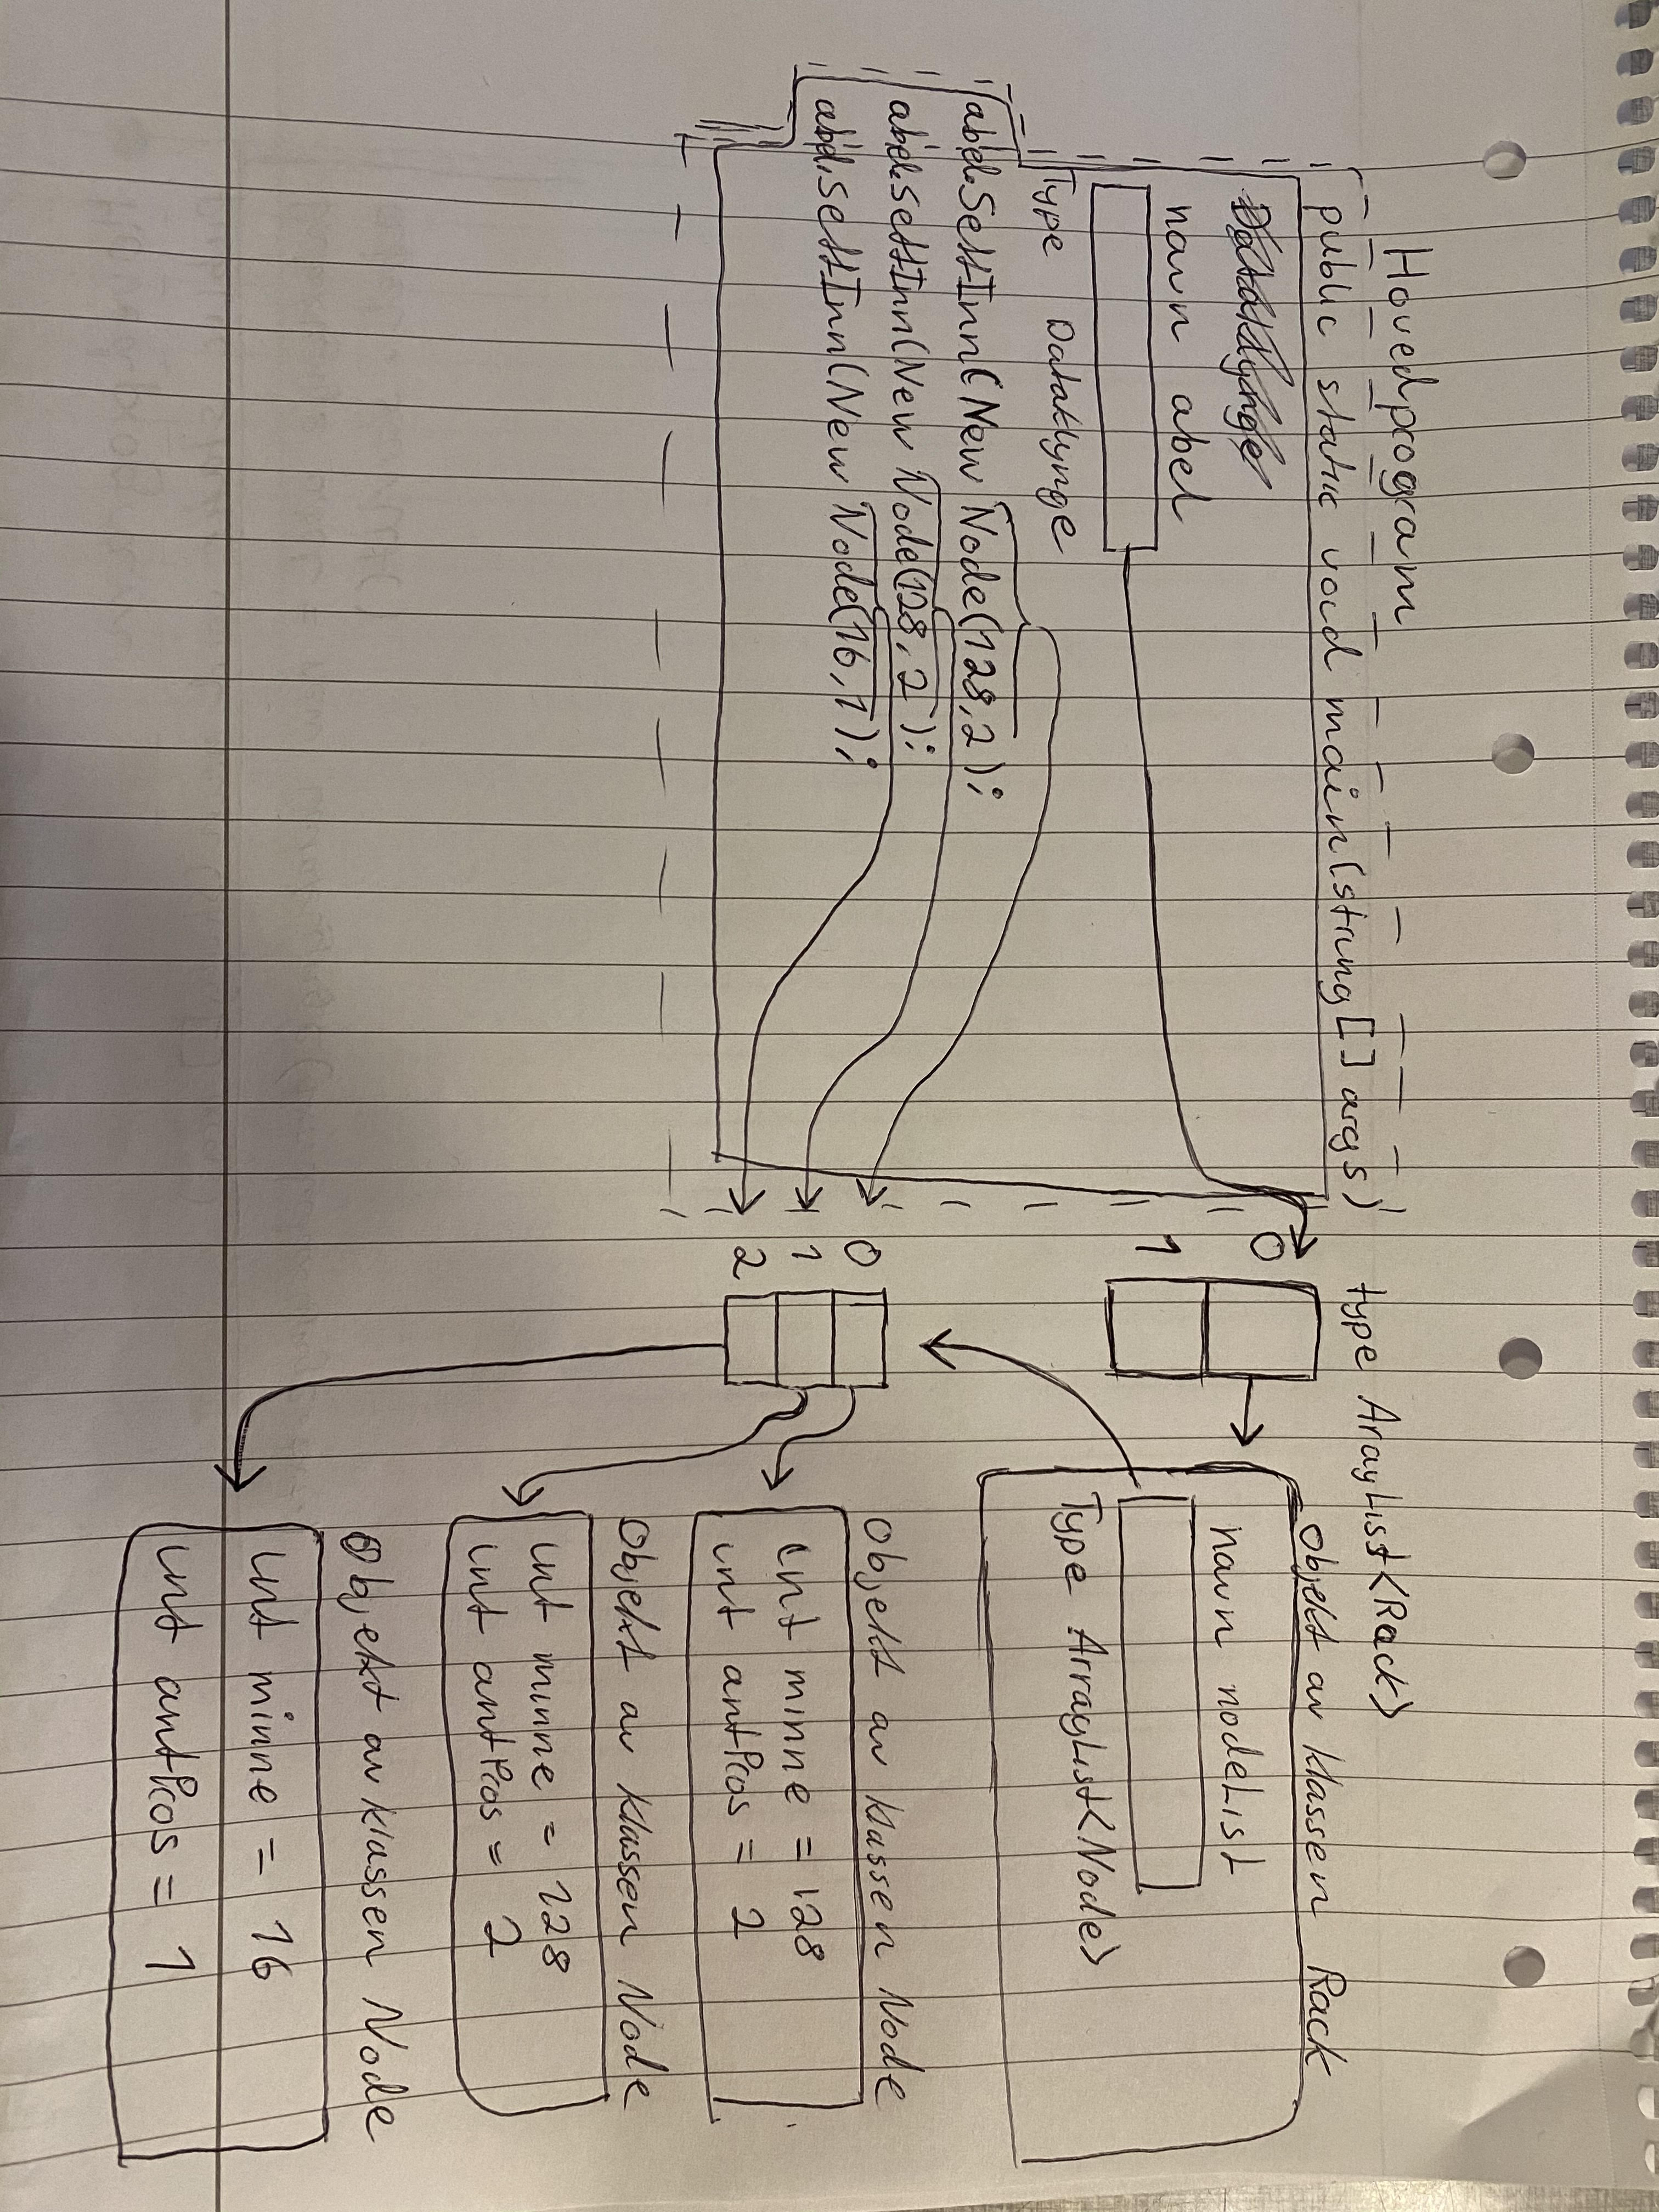 Hovedprogram
public static void main(string[] args)
navn abel
Type Dataklynge
abel.SettInn(New Node(128,2);
abel.settInn(New Node(128,2);
abel.settInn(New Node(16,1);
type ArayList<Rack>
0
1
0
1
2
Objekt av klassen Rack
navn nodeList
Type ArrayList<Node>
Objekt av klassen Node
int minne = 128
int antPros = 2
Objekt av klassen Node
int minne = 128
int antPros = 2
Objekt av klassen Node
int minne = 16
int antPros = 1